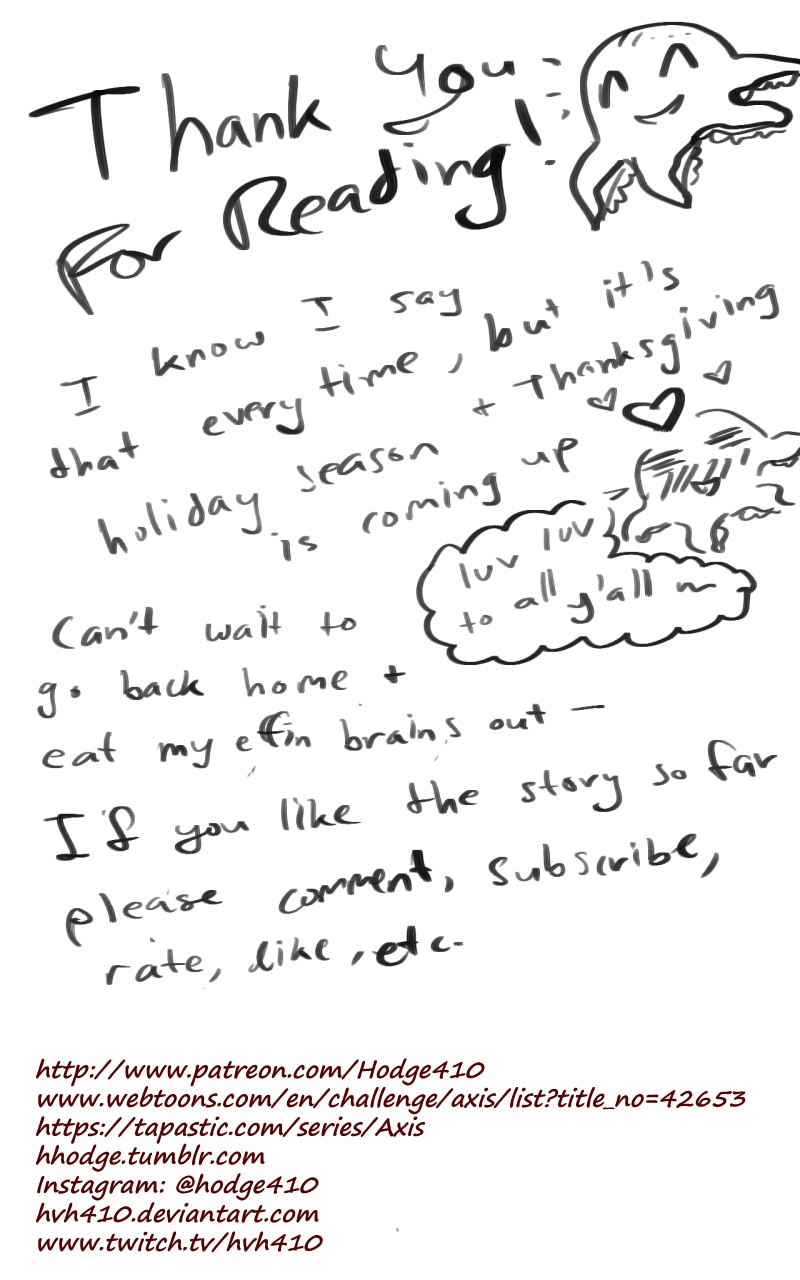 Thank you
for Reading!
I know I say
that every time, but it's
holiday season + Thanksgiving
is coming up
luv luv
to all y'all ~
Can't wait to
go back home +
eat my effin brains out —
If you like the story so far
please comment, subscribe,
rate, like, etc.
http://www.patreon.com/Hodge410
www.webtoons.com/en/challenge/axis/list?title_no=42653
https://tapastic.com/series/Axis
hhodge.tumblr.com
Instagram: @hodge410
hvh410.deviantart.com
www.twitch.tv/hvh410